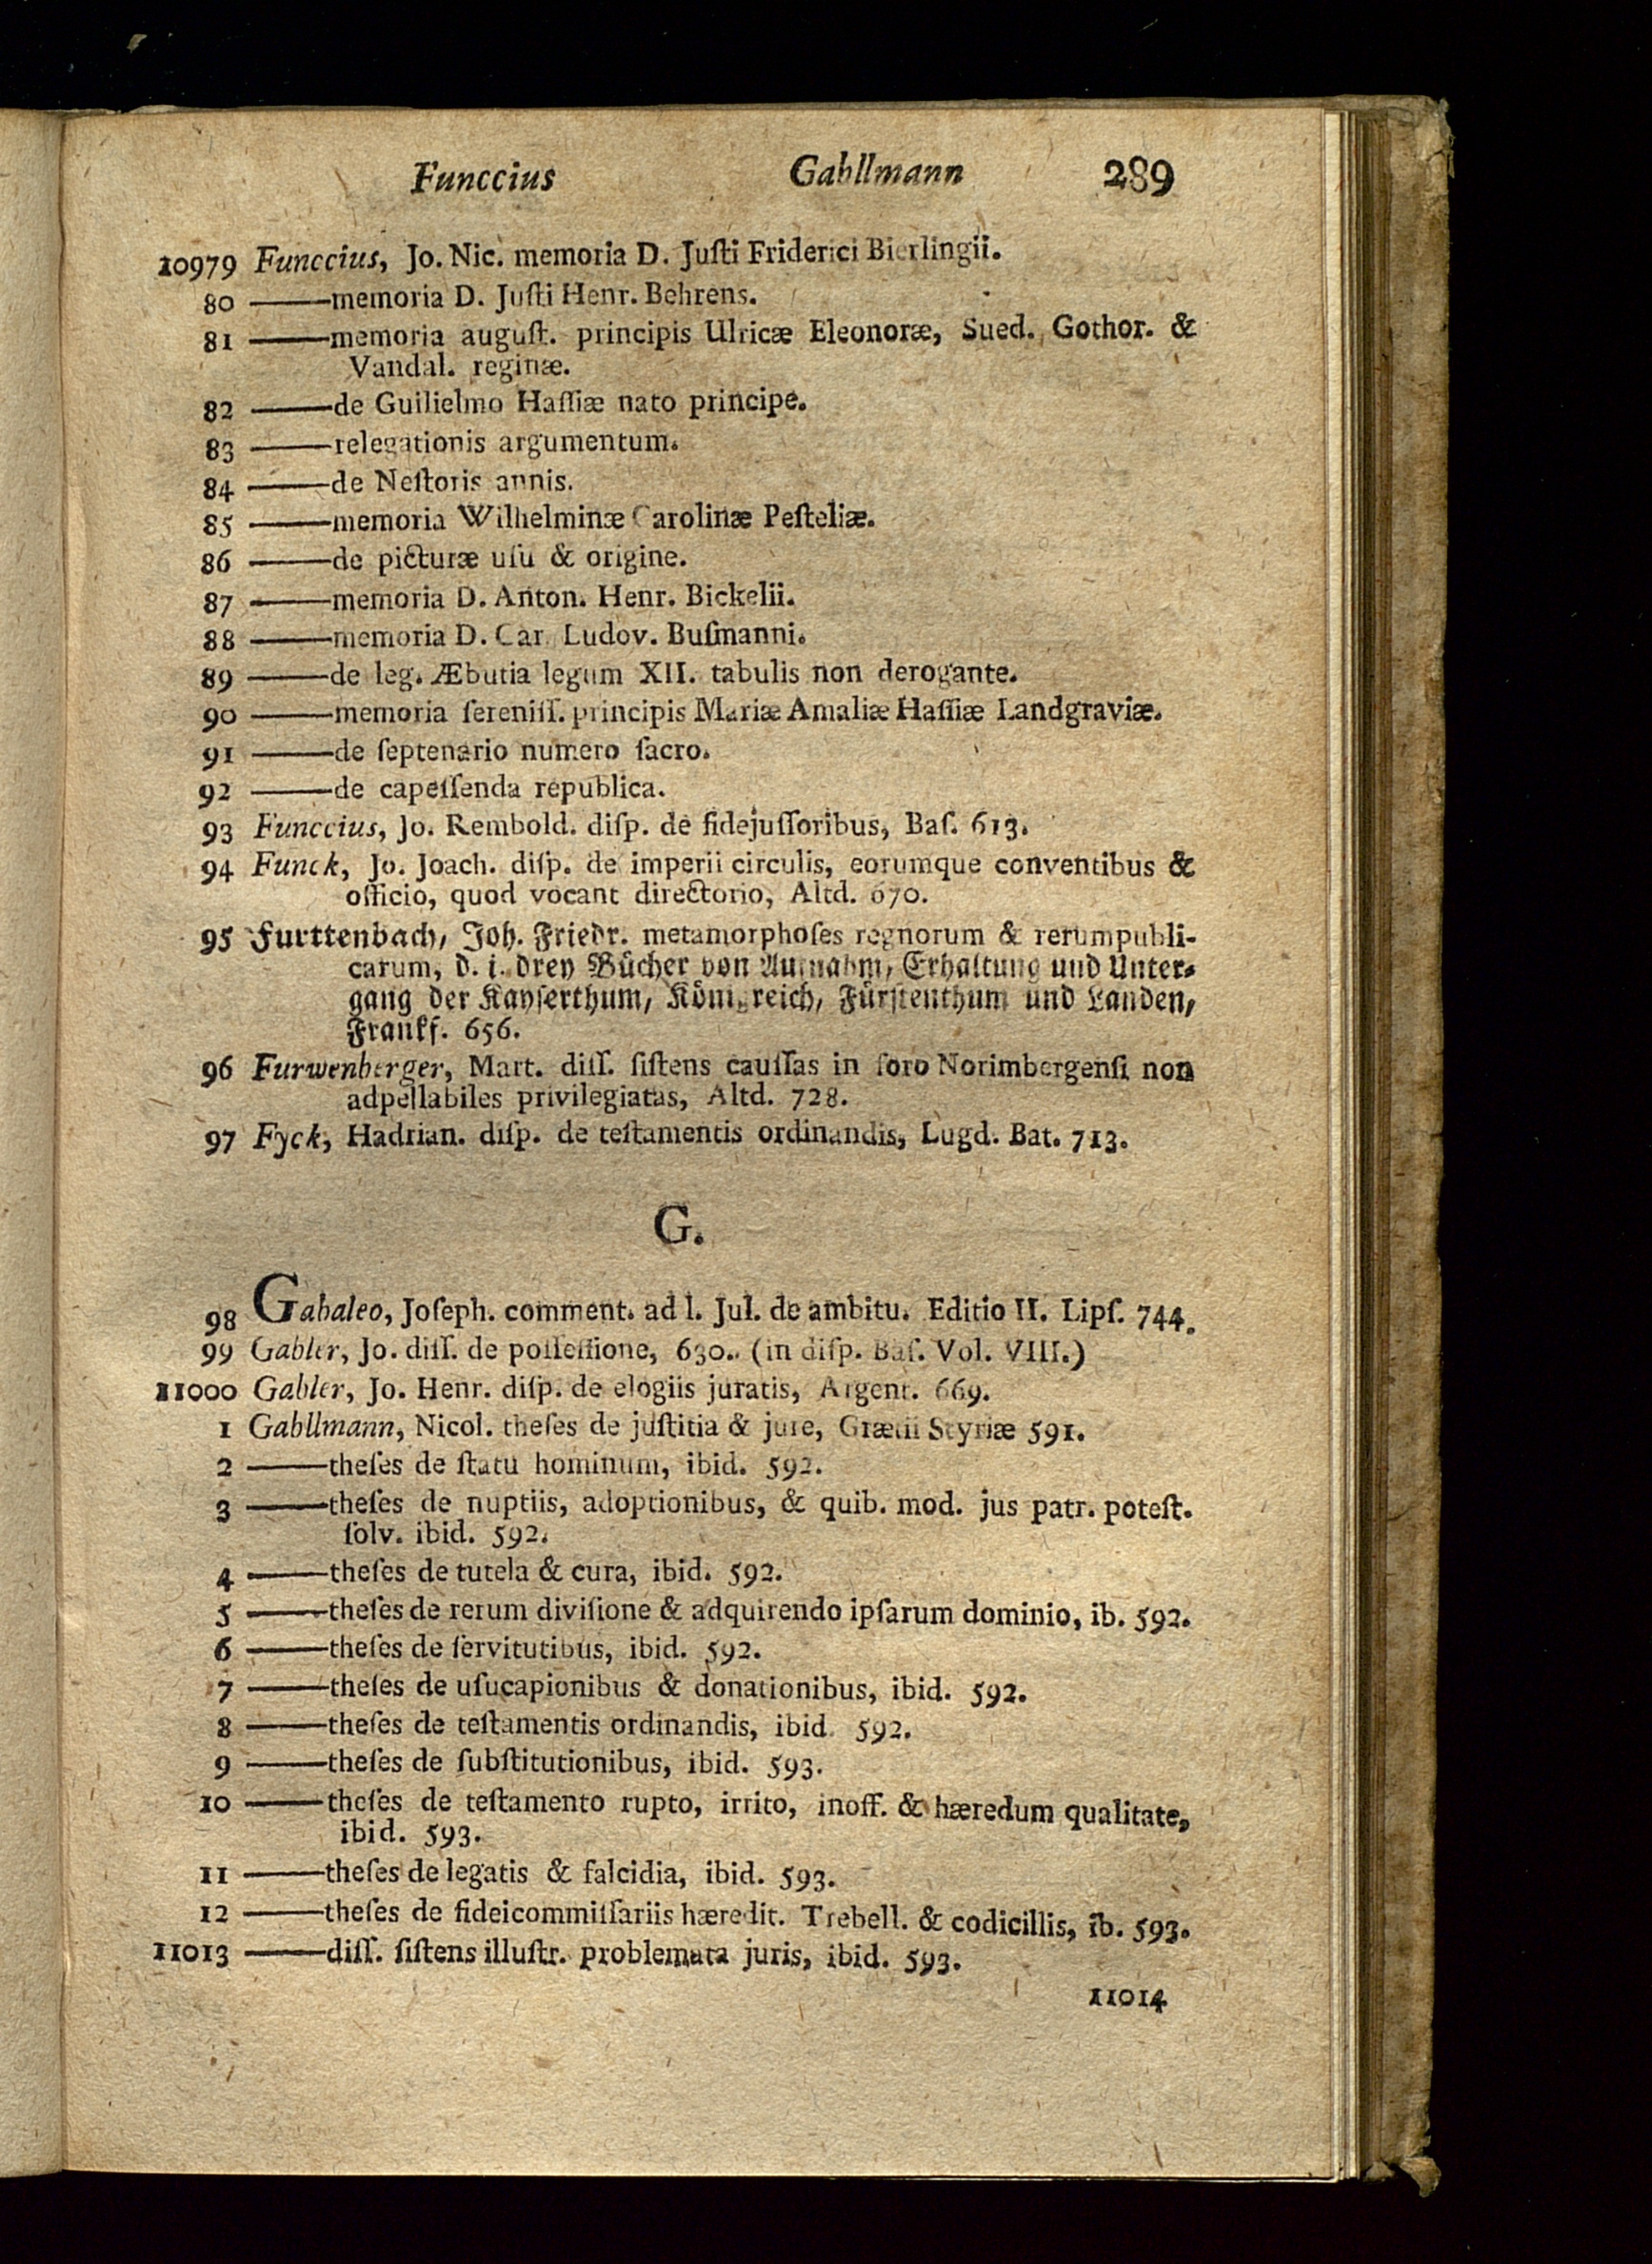 Funccius Gabllmann 289
10979 Funccius, Jo. Nic. memoria D. Juſti Friderici Bierlingii.
80 ——memoria D. Juſti Henr. Behrens.
81 ——memoria auguſt. principis Ulricæ Eleonoræ, Sued. Gothor. &
Vandal. reginæ.
82 ——de Guilielmo Haſſiæ nato principe.
83 ——relegationis argumentum.
84 ——de Neſtoris annis.
85 ——memoria Wilhelminæ Carolinæ Peſteliæ.
86 ——de picturæ uſu & origine.
87 ——memoria D. Anton. Henr. Bickelii.
88 ——memoria D. Car. Ludov. Buſmanni.
89 ——de leg. Æbutia legum XII. tabulis non derogante.
90 ——memoria ſereniſſ. principis Mariæ Amaliæ Haſſiæ Landgraviæ.
91 ——de ſeptenario numero ſacro.
92 ——de capeſſenda republica.
93 Funccius, Jo. Rembold. diſp. de fidejuſſoribus, Baſ. 613.
94 Funck, Jo. Joach. diſp. de imperii circulis, eorumque conventibus &
officio, quod vocant directorio, Altd. 670.
95 Furttenbach, Joh. Friedr. metamorphoſes regnorum & rerumpubli-
carum, d. i. drey Bücher von Aufnahm, Erhaltung und Unter-
gang der Kayſerthum, Königreich, Fürſtenthum und Landen,
Frankf. 656.
96 Furwenberger, Mart. diſſ. ſiſtens cauſſas in foro Norimbergenſi non
adpellabiles privilegiatas, Altd. 728.
97 Fyck, Hadrian. diſp. de teſtamentis ordinandis, Lugd. Bat. 713.
G.
98 Gabaleo, Joſeph. comment. ad l. Jul. de ambitu. Editio II. Lipſ. 744.
99 Gabler, Jo. diſſ. de poſſeſſione, 630.. (in diſp. Baſ. Vol. VIII.)
11000 Gabler, Jo. Henr. diſp. de elogiis juratis, Argent. 669.
1 Gabllmann, Nicol. theſes de juſtitia & jure, Grætii Styriæ 591.
2 ——theſes de ſtatu hominum, ibid. 592.
3 ——theſes de nuptiis, adoptionibus, & quib. mod. jus patr. poteſt.
ſolv. ibid. 592.
4 ——theſes de tutela & cura, ibid. 592.
5 ——theſes de rerum diviſione & adquirendo ipſarum dominio, ib. 592.
6 ——theſes de ſervitutibus, ibid. 592.
7 ——theſes de uſucapionibus & donationibus, ibid. 592.
8 ——theſes de teſtamentis ordinandis, ibid. 592.
9 ——theſes de ſubſtitutionibus, ibid. 593.
10 ——theſes de teſtamento rupto, irrito, inoff. & hæredum qualitate,
ibid. 593.
11 ——theſes de legatis & falcidia, ibid. 593.
12 ——theſes de fideicommiſſariis hæredit. Trebell. & codicillis, ib. 593.
11013 ——diſſ. ſiſtens illuſtr. problemata juris, ibid. 593.
11014